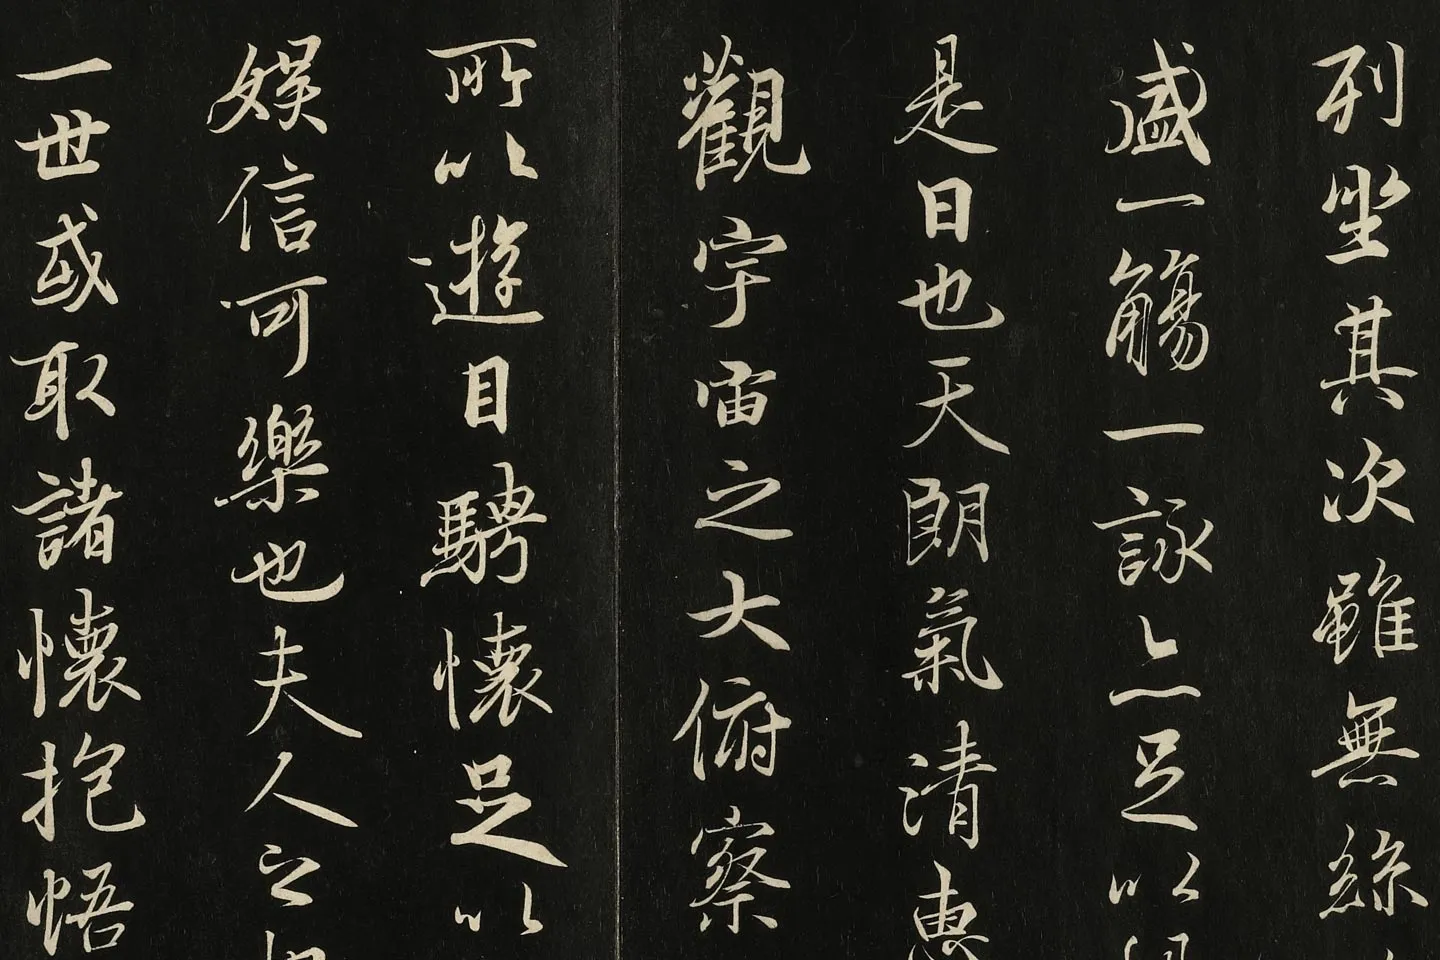 列坐其次雖無絲
盛一觴一詠亦足以
是日也天朗氣清惠
觀宇宙之大俯察
所以遊目騁懷足以
娛信可樂也夫人之
一世或取諸懷抱悟